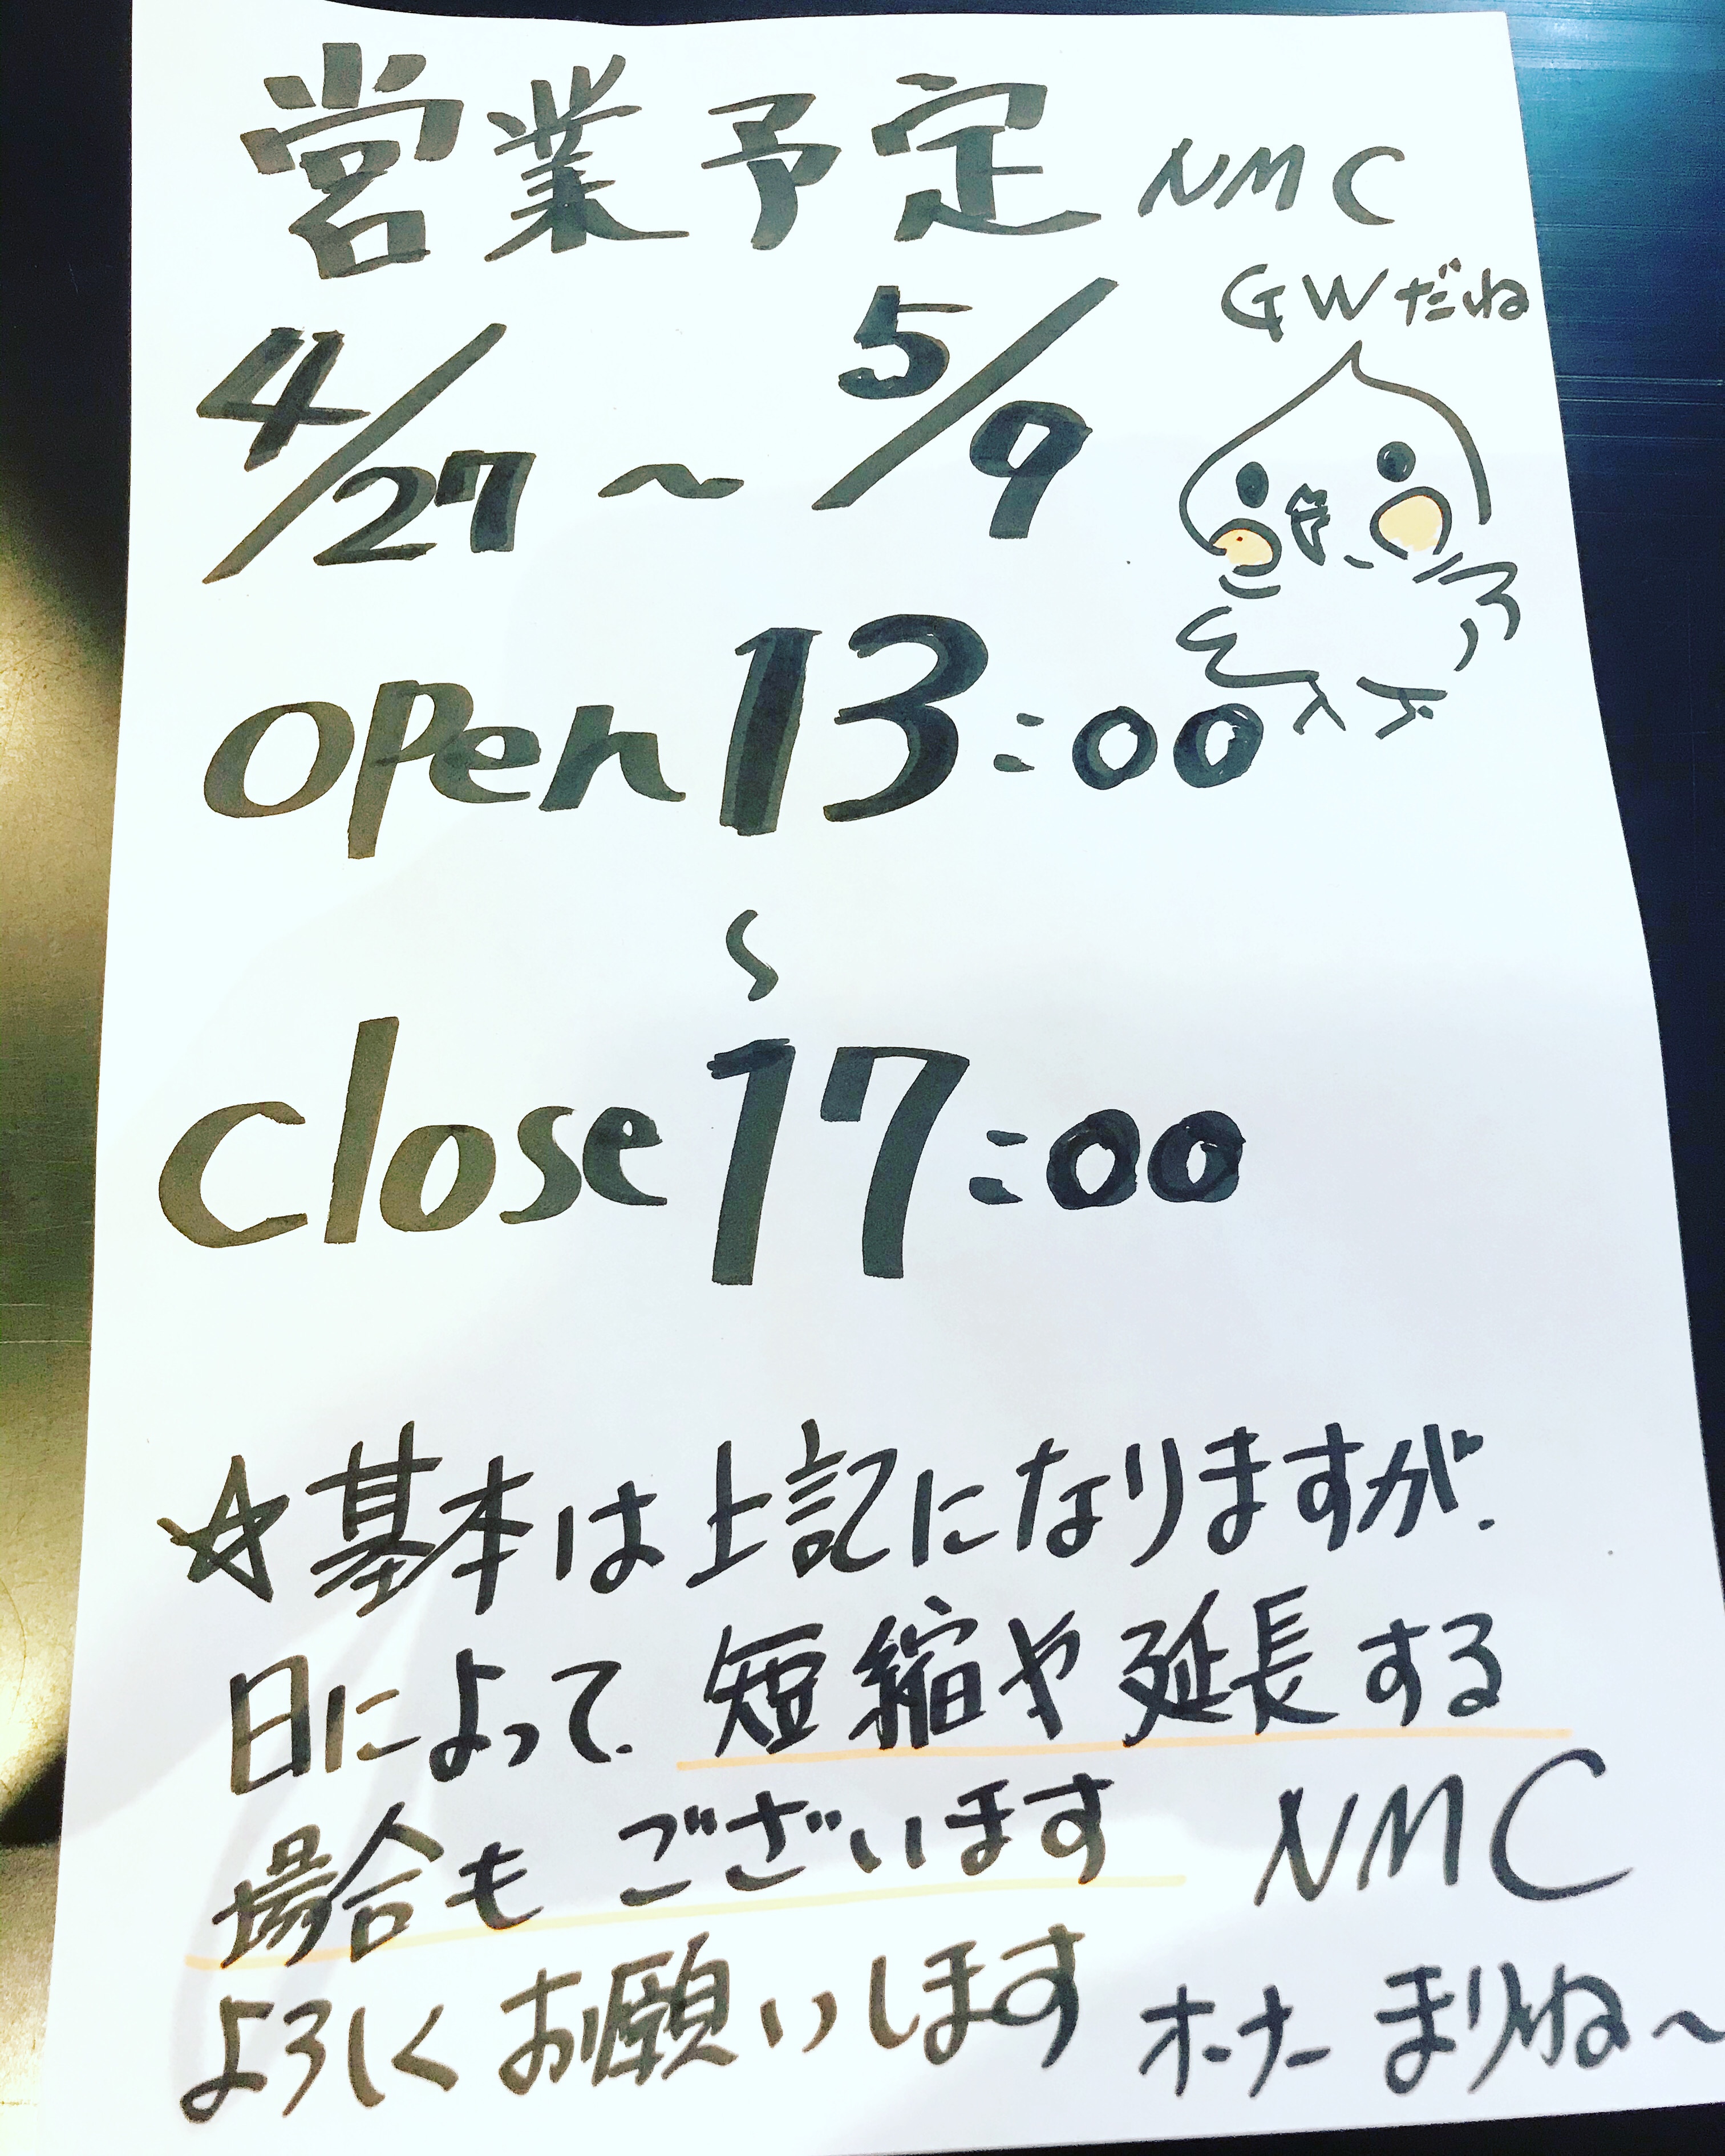 営業予定 NMC
GWだね
4/27 ~ 5/9
open 13:00
~
close 17:00
☆基本は上記になりますが、
日によって、短縮や延長する
場合もございます NMC
よろしくお願いします オーナーまりね~